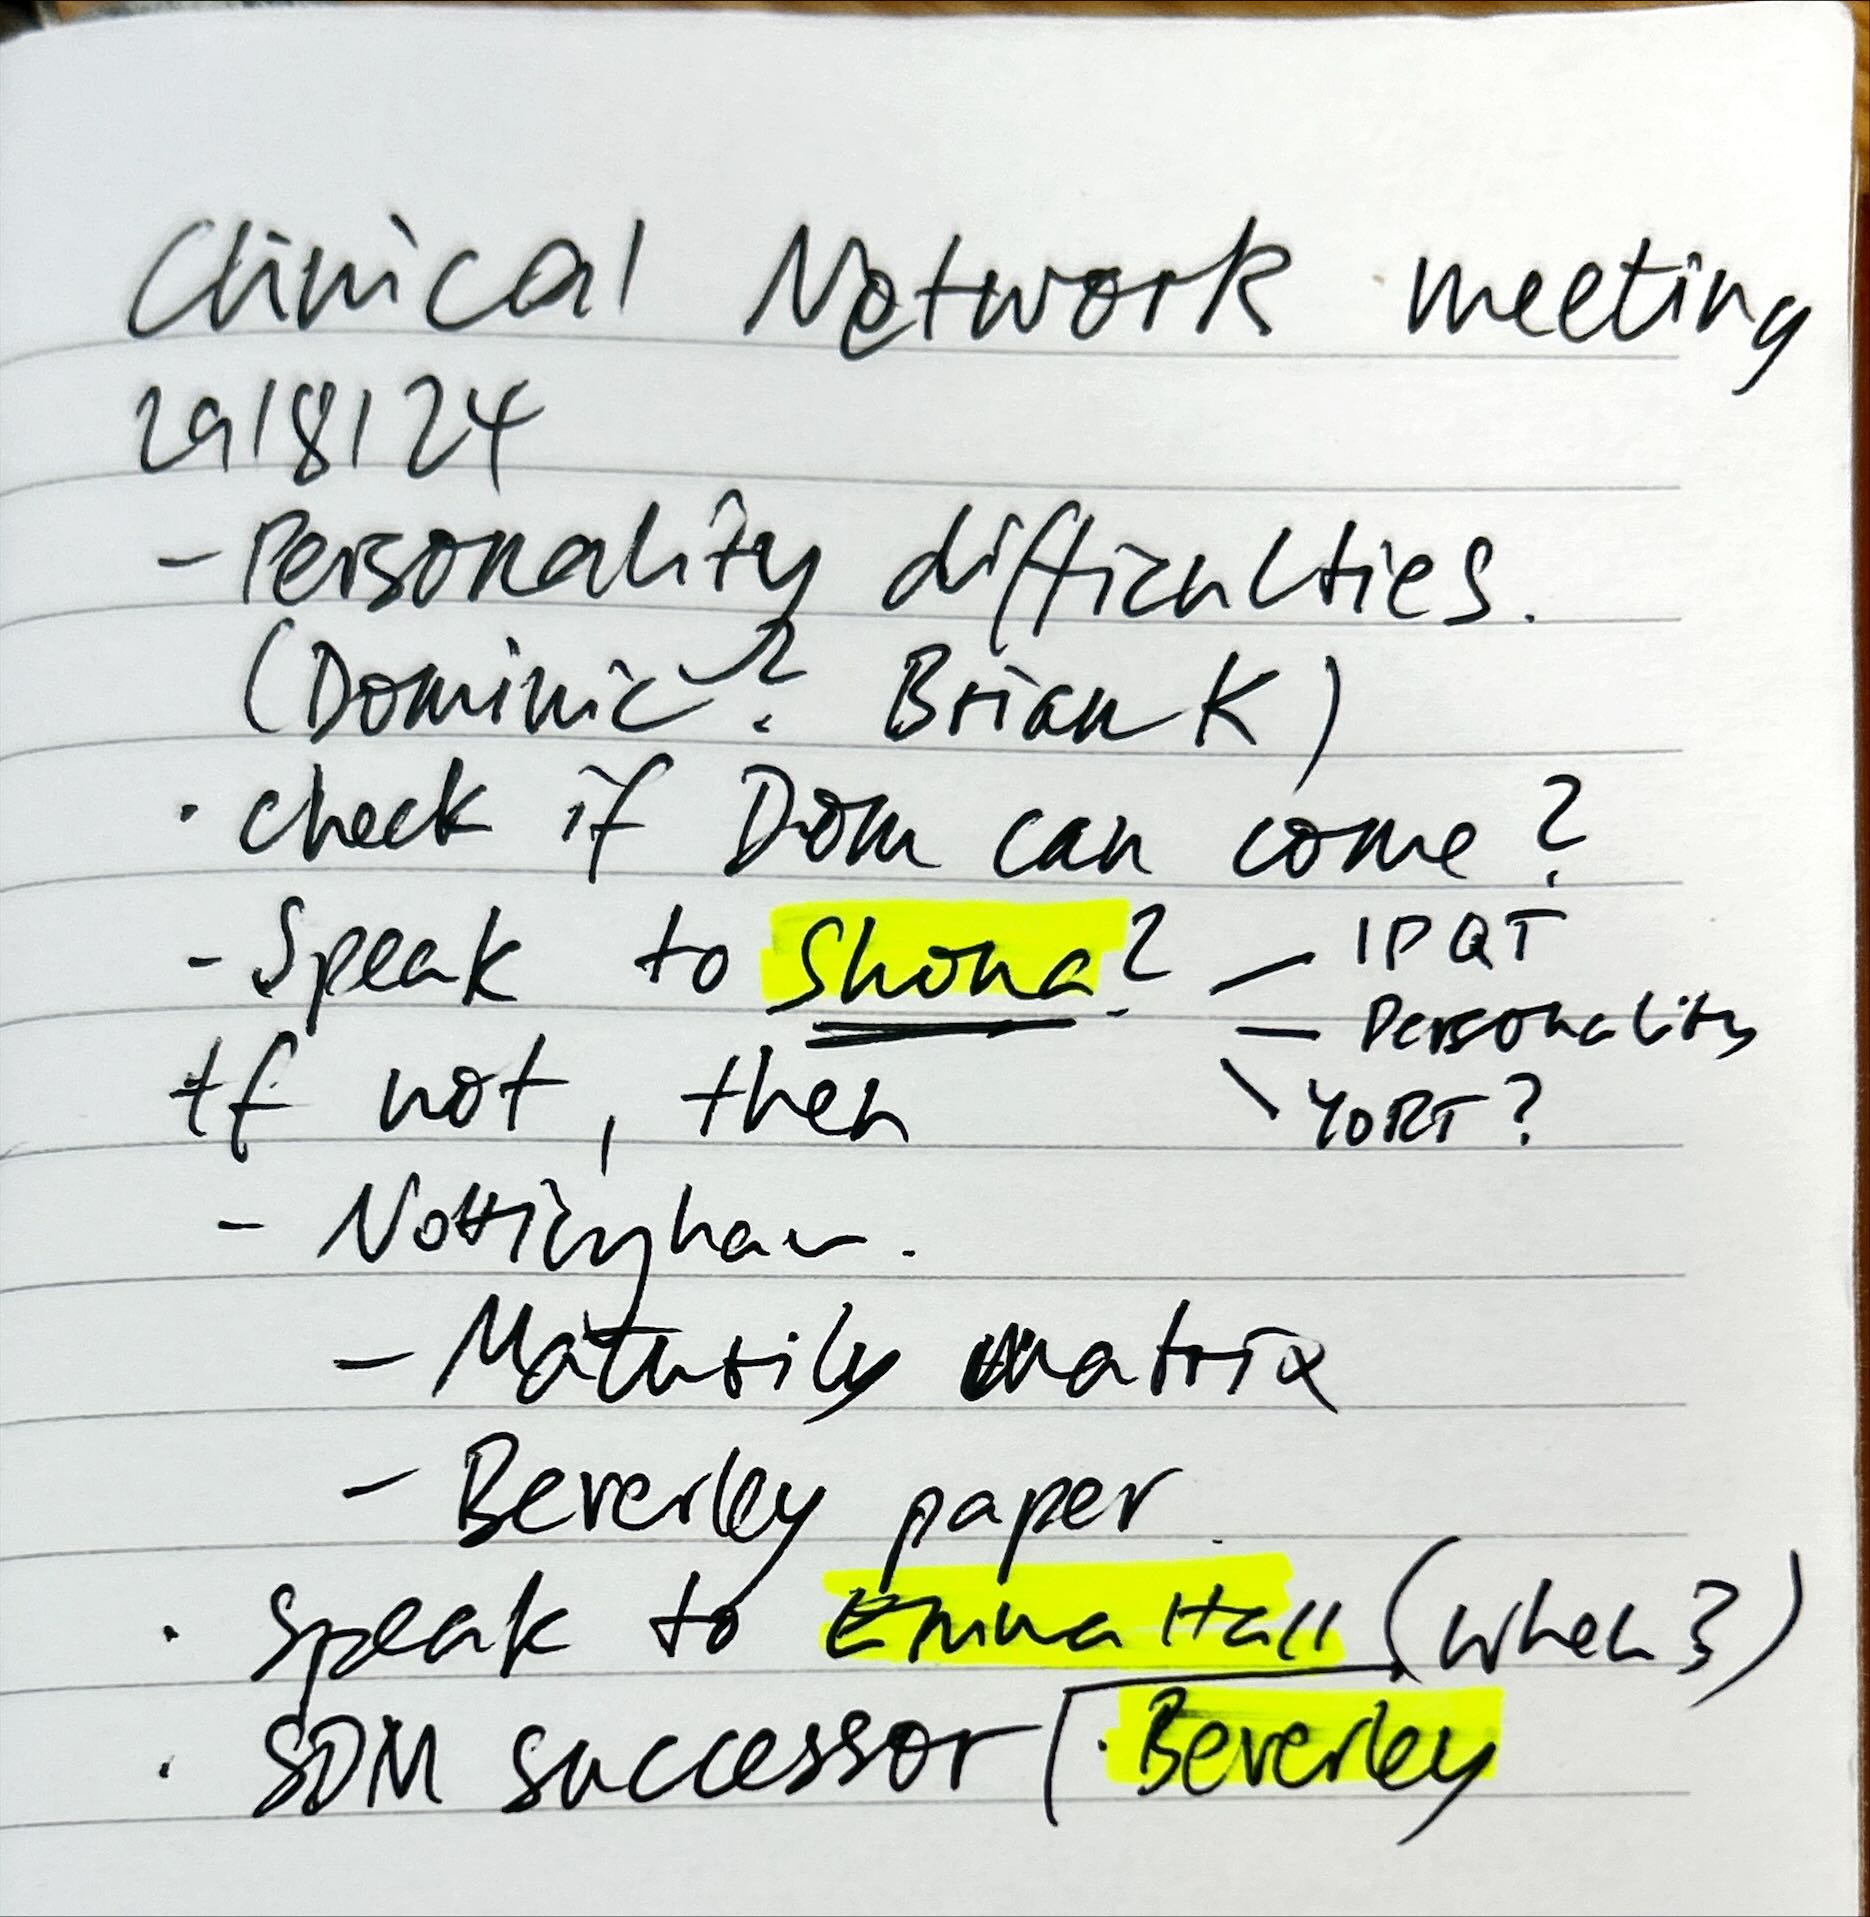 Clinical Network meeting
29/8/24
- Personality difficulties.
(Dominic? Brian K)
· check if Dom can come?
- Speak to Shona?
- IPQT
- Personality
\ YORT?
If not, then
- Nottingham.
- Maturity matrix
- Beverley paper.
· Speak to Emma Hall (when?)
· SDM successor
· Beverley